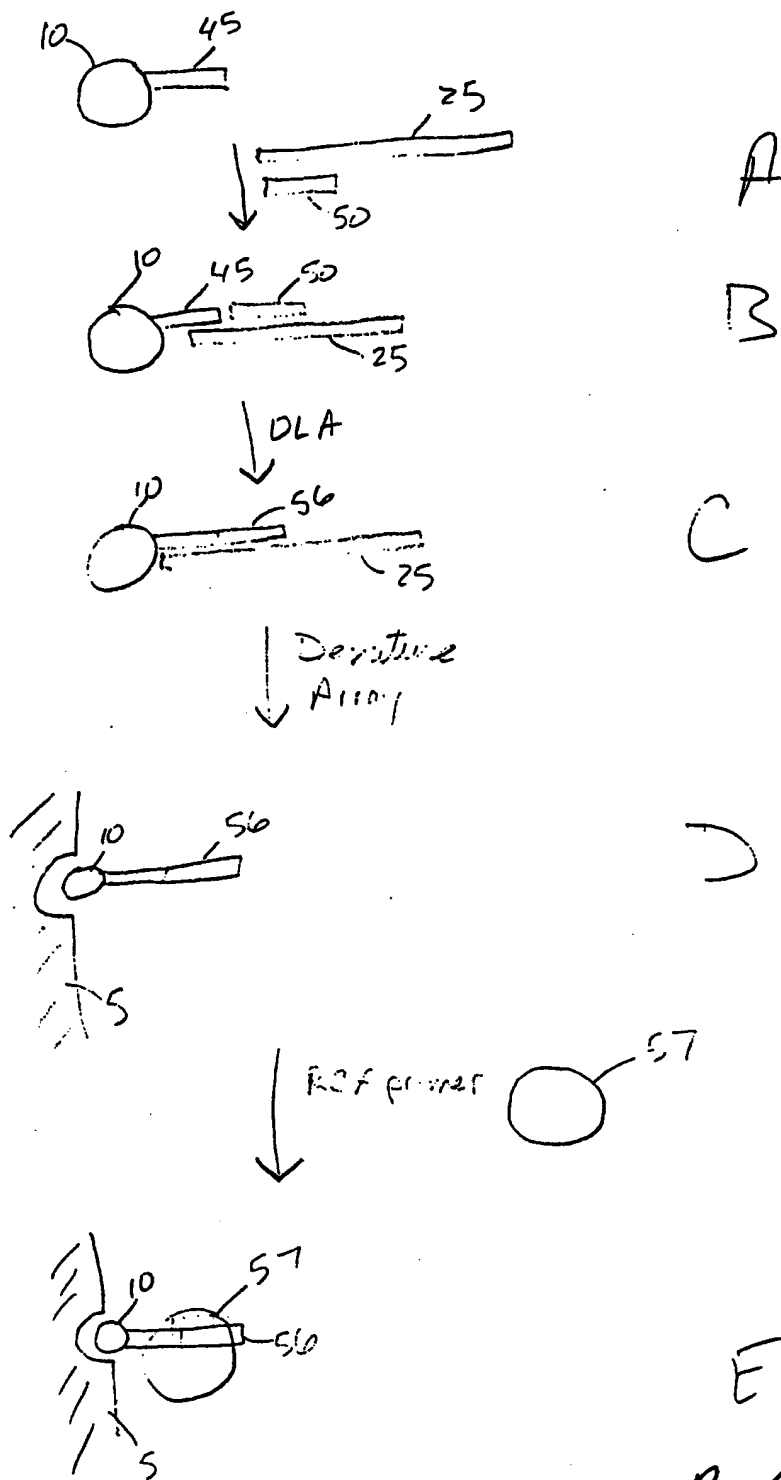 10 45
25
A
50
10 45 50
B
25
OLA
10 56
C
25
Denature
Array
10 56
D
5
primer 57
10 57
56
E
5